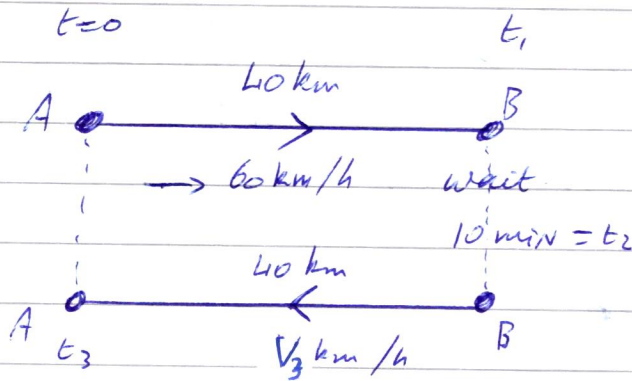 t=0 t₁
40 km
A B
→ 60 km/h wait
10 min = t₂
40 km
A B
t₃ V₃ km/h